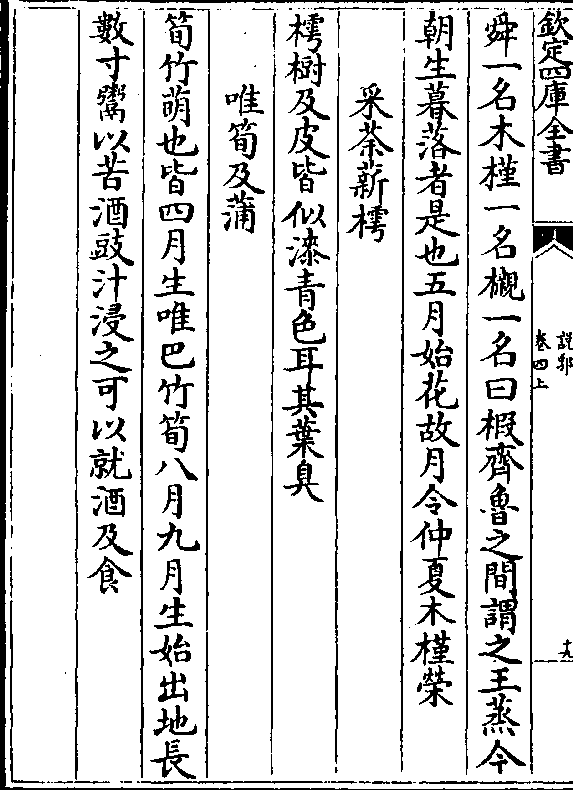 欽定四庫全書
說郛
卷四上
十九
舜一名木槿一名櫬一名曰椵齊魯之間謂之王蒸今
朝生暮落者是也五月始花故月令仲夏木槿榮
采荼薪樗
樗樹及皮皆似漆青色耳其葉臭
唯筍及蒲
筍竹萌也皆四月生唯巴竹筍八月九月生始出地長
數寸鬻以苦酒豉汁浸之可以就酒及食